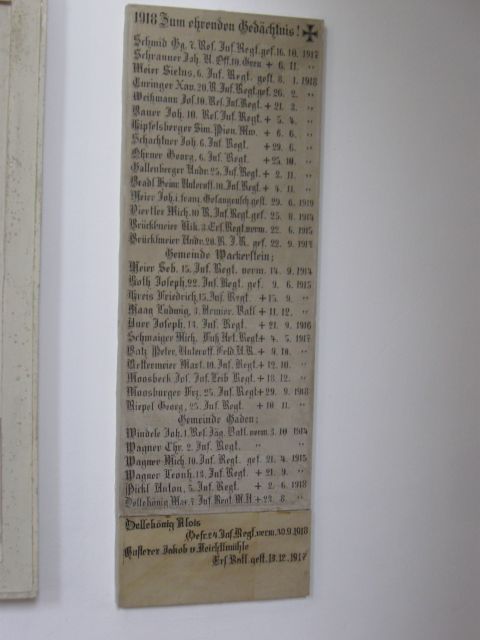 1918 Zum ehrenden Gedächtnis!
Schmid Gg. 7. Res. Inf. Regt. gef. 16. 10. 1917
Schranner Joh. U. Off. 10. + 6. 11. "
Meier Sixtus, 6. Inf. Regt. gest. 8. 1. 1918
Euringer Xav. 20. R. Inf. Regt. gef. 26. 2. "
Weißmann Jos. 10. Res. Inf. Regt. + 21. 3. "
Bauer Joh. 10. Res. Inf. Regt. + 5. 4. "
Kipfelsberger Sim. Pion. Mw. + 6. 6. "
Schachtner Joh. 6. Inf. Regt. + 29. 6. "
Georg, 6. Inf. Regt. + 25. 10. "
Gallenberger Andr. 25. Inf. Regt. + 2. 11. "
Heinr. Unteroff. 10. Inf. Regt. + 4. 11. "
Meier Joh. i. franz. Gefangensch. gest. 29. 6. 1919
Viertler Mich. 10 R. Inf. Regt. gef. 25. 8. 1914
Brücklmeier Nik. 3. Ers. Regt. verm. 22. 6. 1915
Brücklmeier Andr. 20. R. J. R. gef. 22. 9. 1917
Gemeinde Wackerstein;
Meier Seb. 15. Inf. Regt. verm. 14. 9. 1914
Roth Joseph, 22. Inf. Regt. gef. 9. 6. 1915
Kreis Friedrich, 15. Inf. Regt. + 15. 9. "
Maag Ludwig, 3. Batl + 11. 12. "
Auer Joseph, 13. Inf. Regt. + 21. 9. 1916
Schmaiger Mich. Fuß Art. Regt + 4. 5. 1917
Batz Peter, Unteroff. Feld. A. R. + 9. 10. "
Bettermeier Mart. 10. Inf. Regt. + 12. 10. "
Moosbeck Jos. Inf. Leib Regt. + 18. 12. "
Moosburger Frz. 25. Inf. Regt + 29. 9. 1918
Riepel Georg, 25. Inf. Regt. + 10 11. "
Gemeinde Gaden;
Windele Joh. 1. Res. Jäg. Batl. verm. 3. 10 1914
Wagner Chr. 2. Inf. Regt. " "
Wagner Mich. 10. Inf. Regt. gef. 21. 4. 1915
Wagner Leonh. 13. Inf. Regt. + 21. 9. "
Pickl Anton, 5. Inf. Regt. + 2. 6. 1918
Dellekönig Max. 7. Inf. Regt. + 23. 8. "
Dellekönig Alois
Gefr. 24 Inf. Regt. verm. 30. 9. 1918
Gusterer Jakob v. Feichtlmühle
Ers Batl. gest. 13. 12. 1917